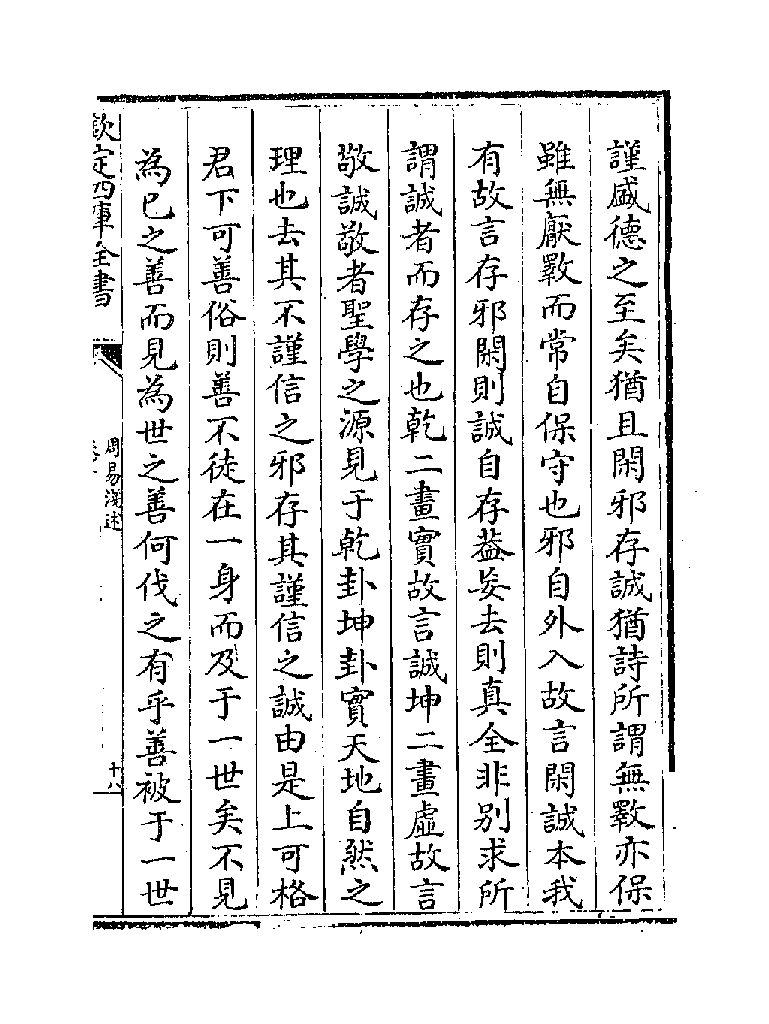 謹盛德之至矣猶且閑邪存誠猶詩所謂無斁亦保
雖無厭斁而常自保守也邪自外入故言閑誠本我
有故言存邪閑則誠自存葢妄去則真全非别求所
謂誠者而存之也乾二畫實故言誠坤二畫虛故言
敬誠敬者聖學之源見于乾卦坤卦實天地自然之
理也去其不謹信之邪存其謹信之誠由是上可格
君下可善俗則善不徒在一身而及于一世矣不見
為已之善而見為世之善何伐之有乎善被于一世
欽定四庫全書
周易淺述
十八